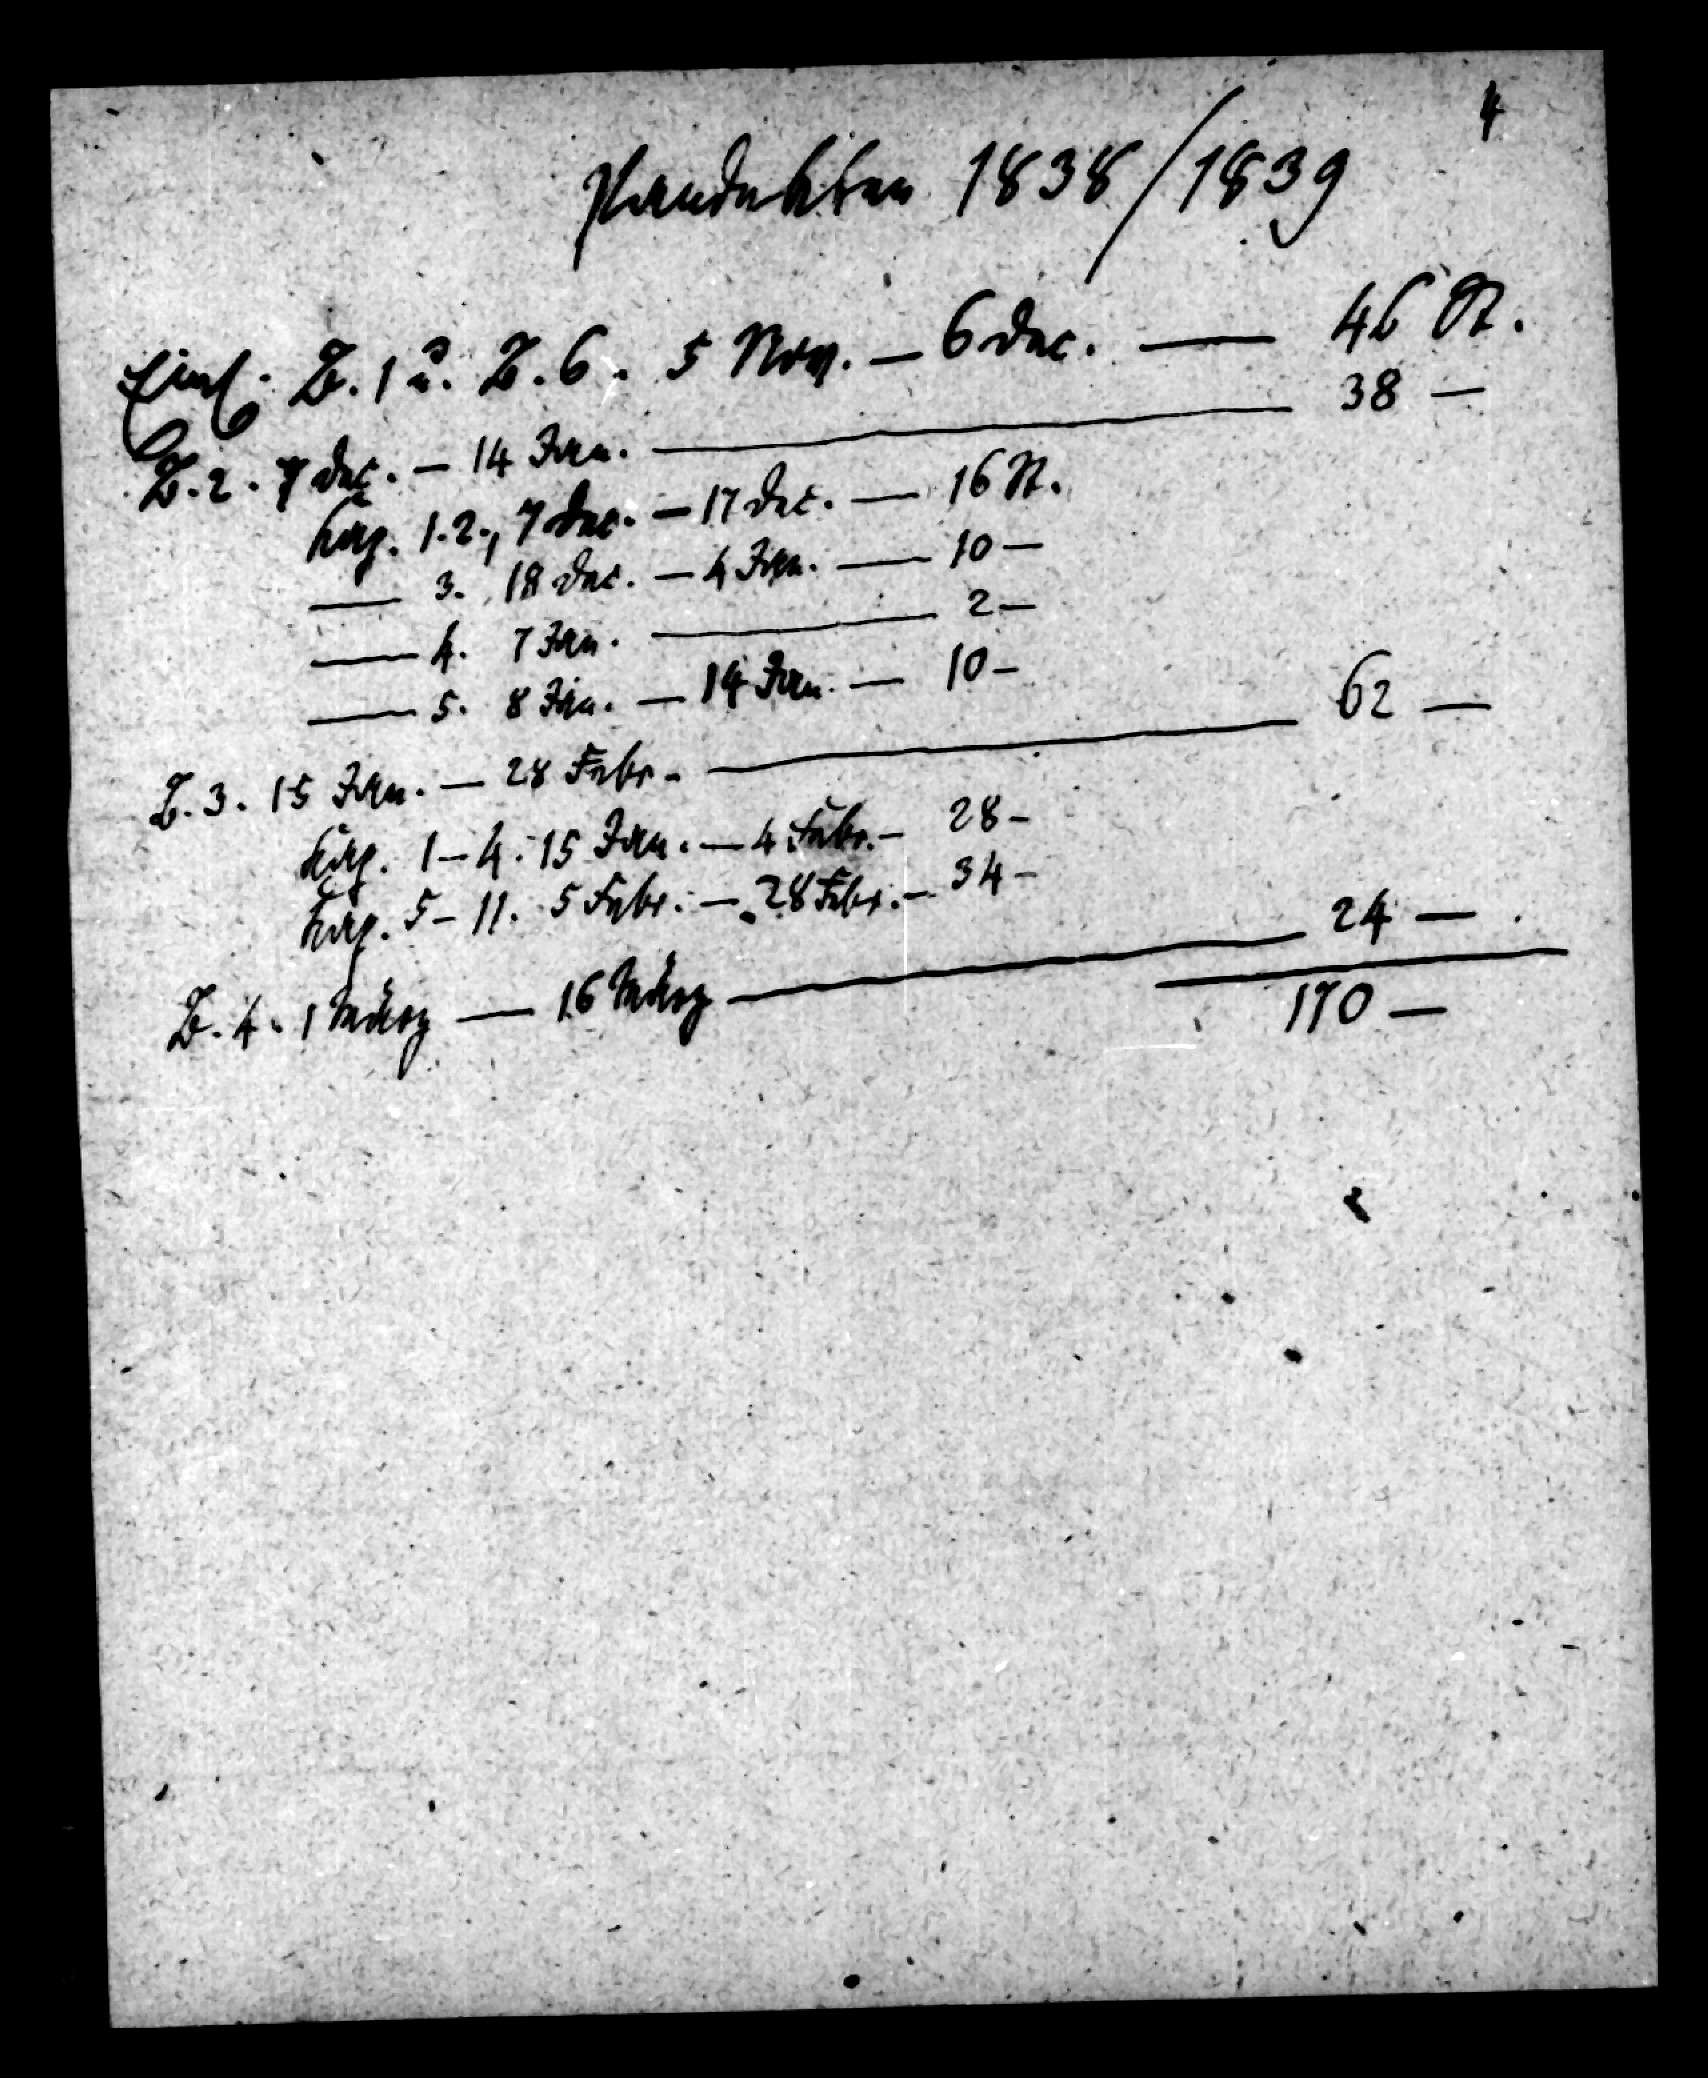 4
Pandekten 1838/1839
Einl. B. 1 u. B. 6. 5 Nov. — 6 Dec. — 46 St.
B. 2. 7 Dec. — 14 Jan. — 38 —
Kap. 1. 2., 7 Dec. — 17 Dec. — 16 St.
— 3. 18 Dec. — 4 Jan. — 10 —
— 4. 7 Jan. — 2 —
— 5. 8 Jan. — 14 Jan. — 10 —
B. 3. 15 Jan. — 28 Febr. — 62 —
Kap. 1 — 4. 15 Jan. — 4 Febr. — 28 —
Kap. 5 — 11. 5 Febr. — 28 Febr. — 34 —
B. 4. 1 März — 16 März — 24 —
170 —